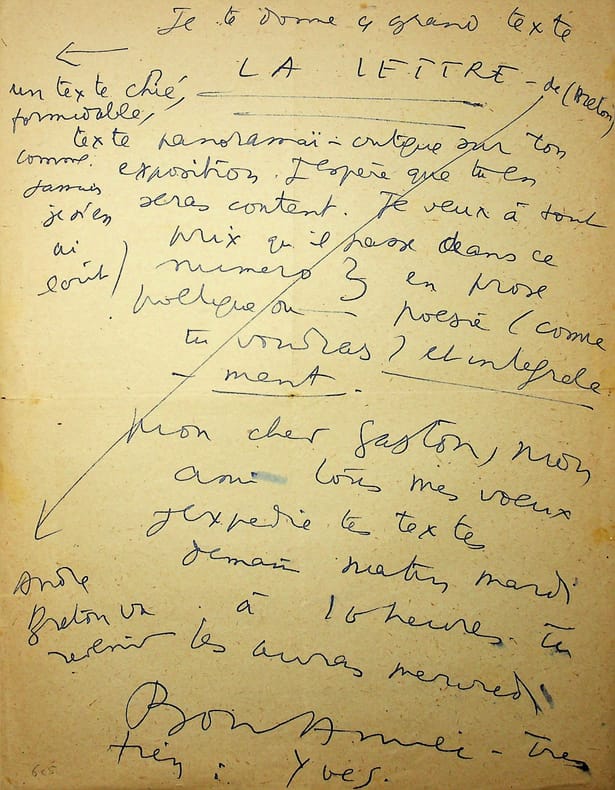 Je te donne ce grand texte
LA LETTRE - de (Breton)
un texte chié,
formidable,
texte panoramaï-critique sur ton
comme
exposition. J'espère que tu en
jamais
seras content. Je veux à tout
je n'en
prix qu'il passe dans ce
ai
numéro 3 en prose
écrit)
poétique ou poésie (comme
tu voudras) et intégrale
- ment.
Mon cher Gaston, mon
ami tous mes voeux
J'expédie tes textes
demain matin mardi
à 10 heures. Tu
les auras mercredi
André
Breton va
revenir
Bon Année - très
tien : Yves.